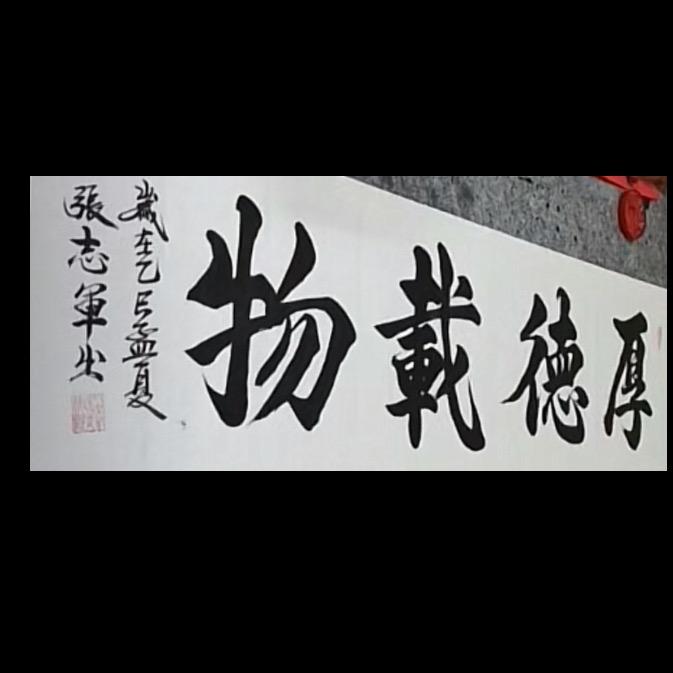 厚德載物
歲在乙巳孟夏
張志軍书